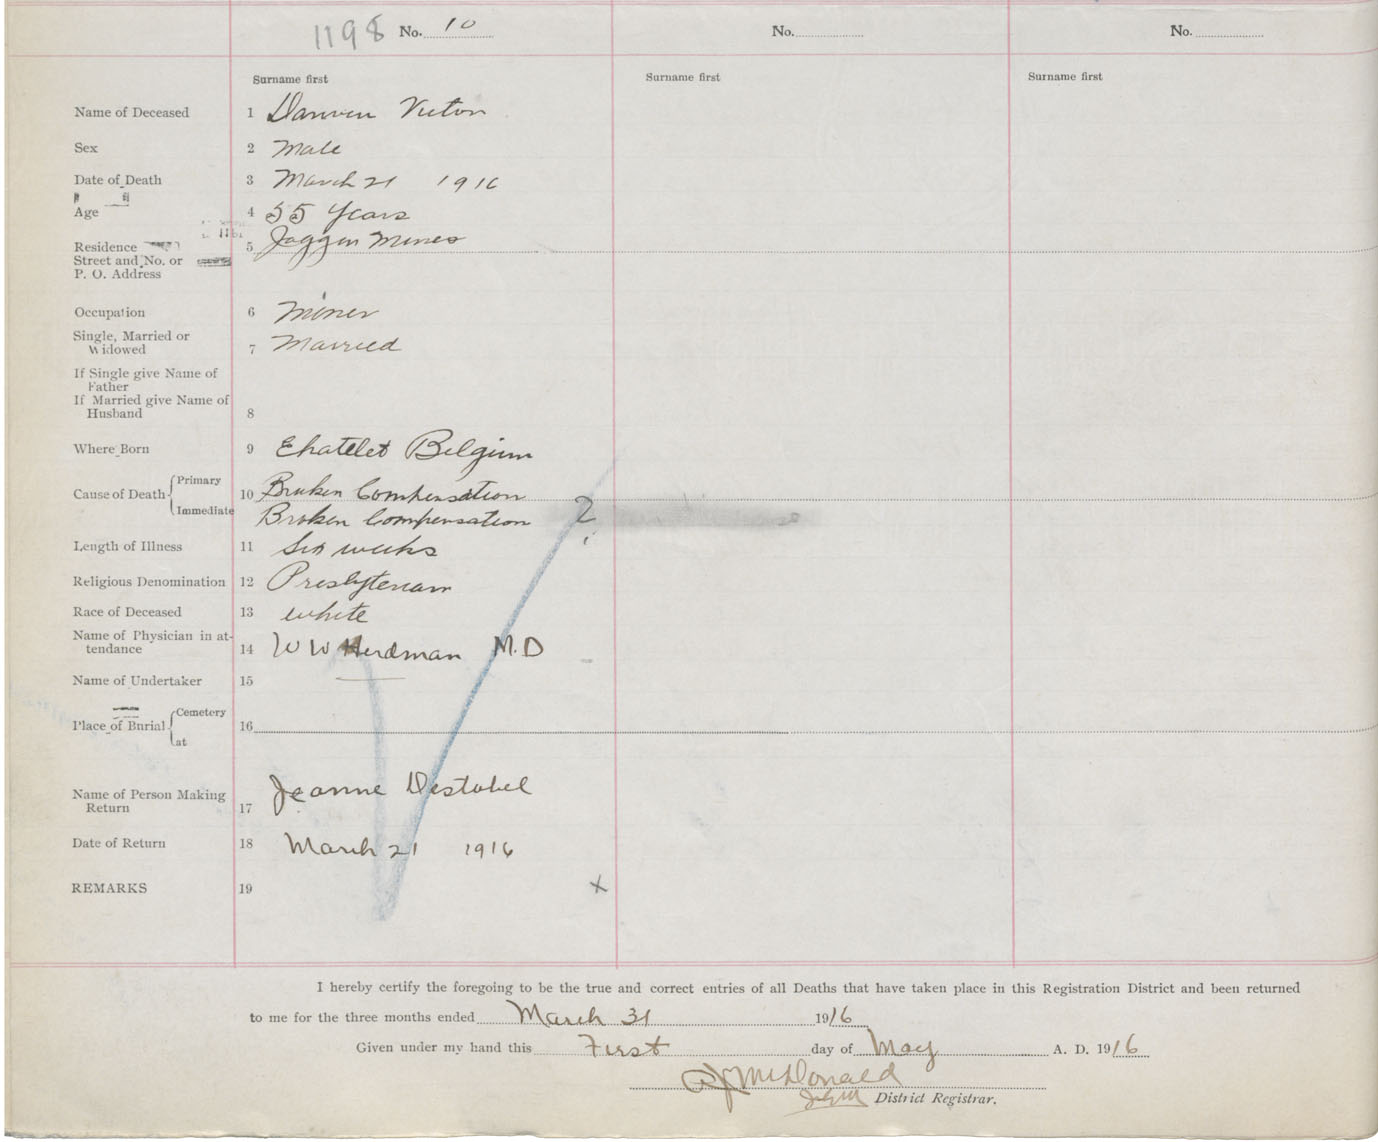 1198 No. 10 No. No.
Surname first Surname first Surname first
Name of Deceased 1 Danven Victor
Sex 2 Male
Date of Death 3 March 21 1916
Age 4 55 Years
Residence 5 Joggin Mines
Street and No. or
P. O. Address
Occupation 6 Miner
Single, Married or
Widowed 7 Married
If Single give Name of
Father
If Married give Name of
Husband 8
Where Born 9 Chatelet Belgium
Cause of Death Primary 10 Broken Compensation
Immediate Broken Compensation ?
Length of Illness 11 Six weeks
Religious Denomination 12 Presbyterian
Race of Deceased 13 white
Name of Physician in at-
tendance 14 W W Herdman M.D
Name of Undertaker 15
Place of Burial Cemetery 16
at
Name of Person Making
Return 17 Jeanne Destobel
Date of Return 18 March 21 1916
REMARKS 19 x
I hereby certify the foregoing to be the true and correct entries of all Deaths that have taken place in this Registration District and been returned
to me for the three months ended March 31 1916
Given under my hand this First day of May A. D. 1916
McDonald
District Registrar.